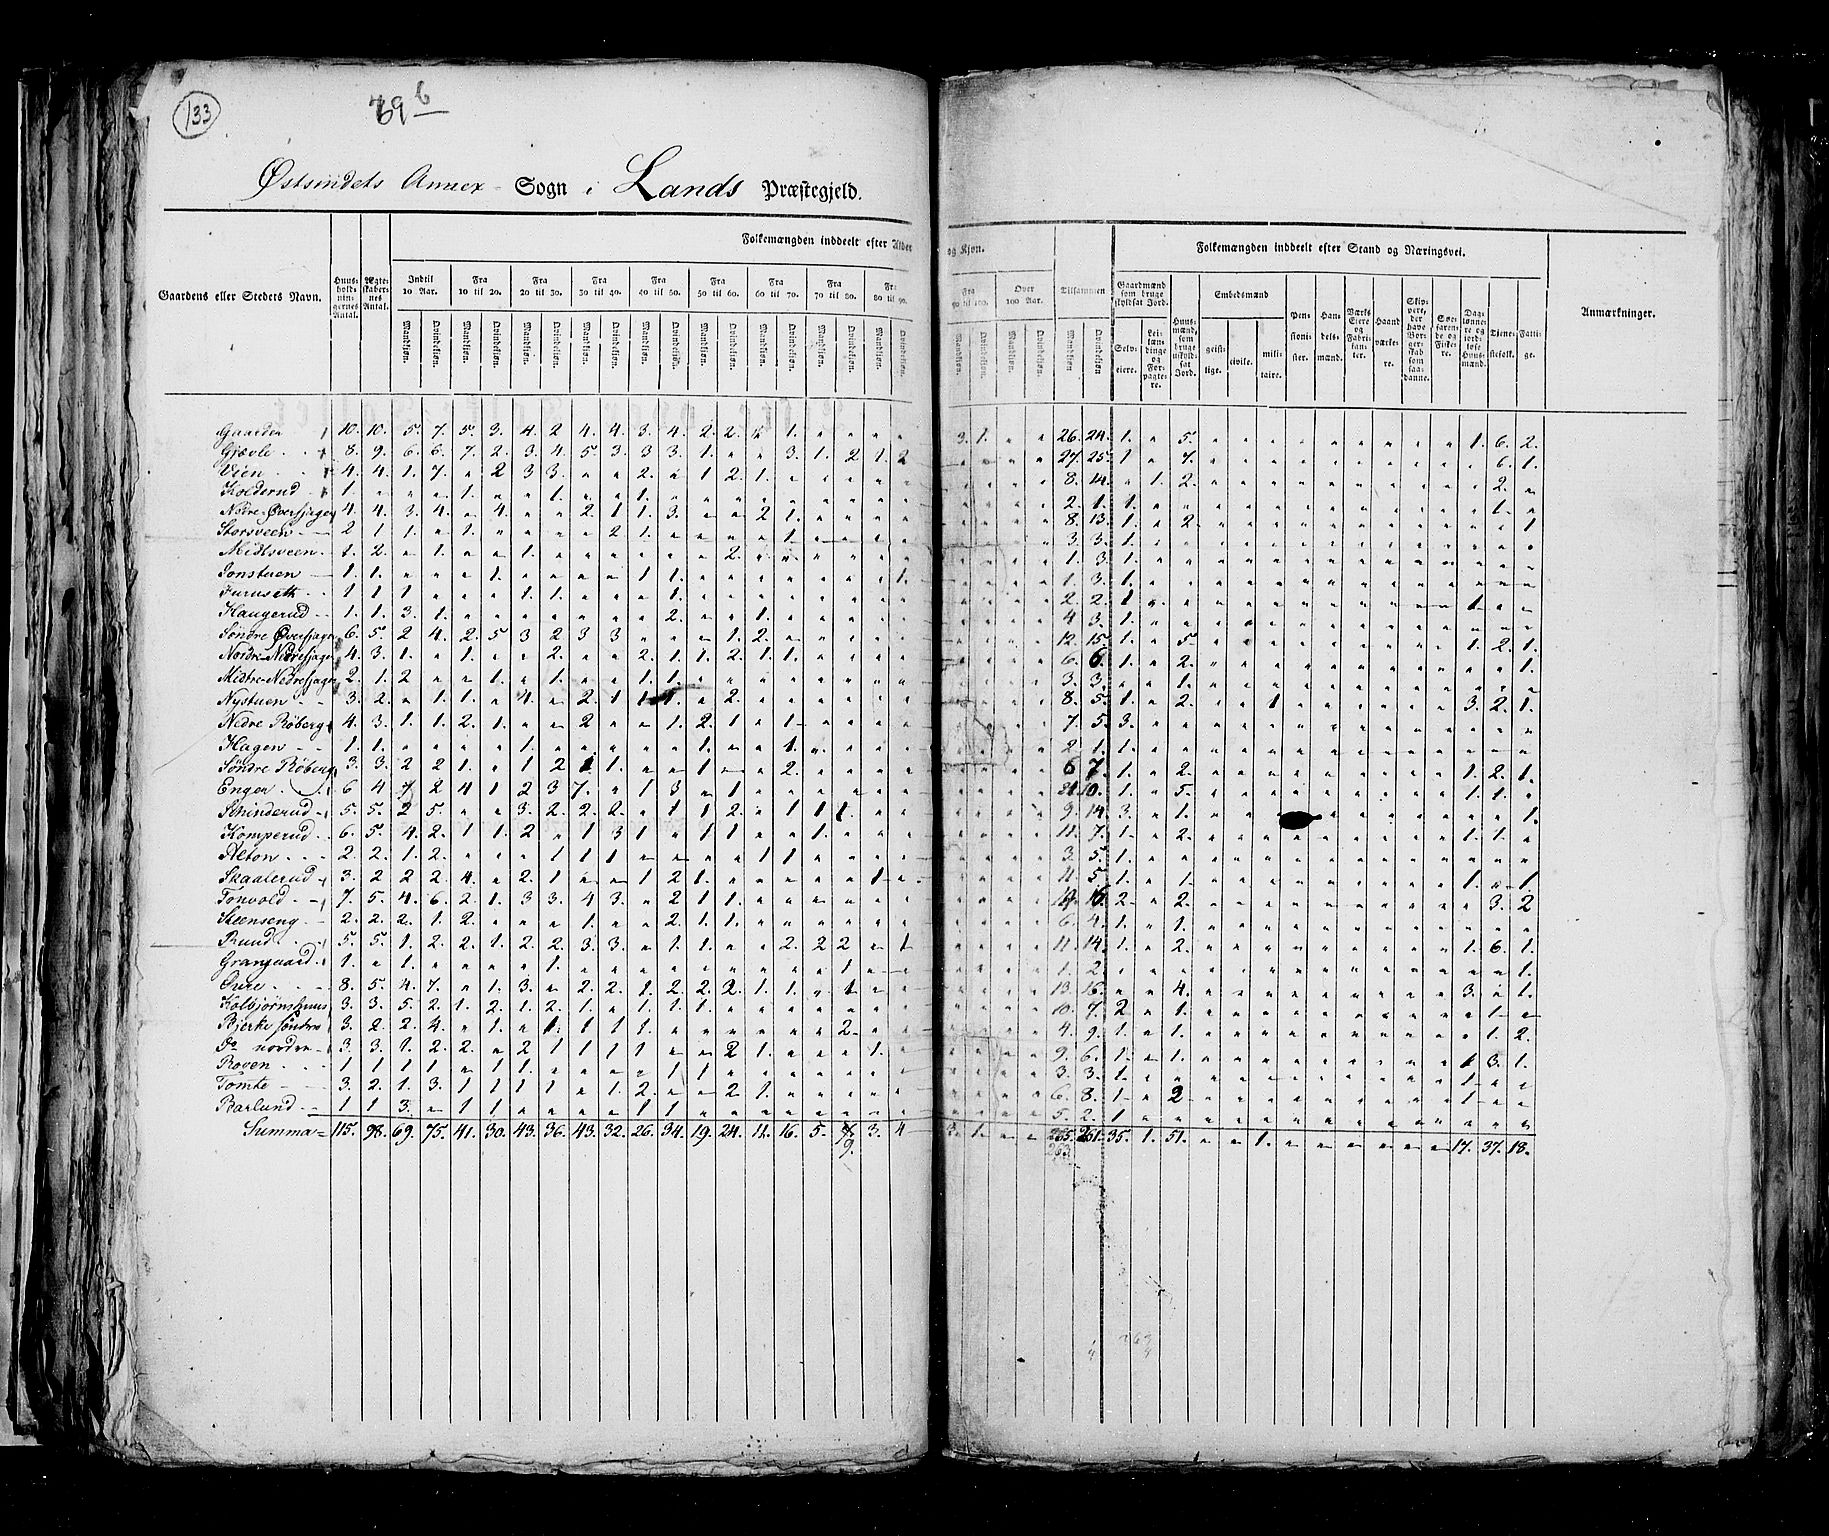 133
Østsindets Annex Sogn i Lands Præstegjeld.
Folkemængden inddeelt efter Alder og Kjøn.
Folkemængden inddeelt efter Stand og Næringsvei.
Gaardens eller Stedets Navn.
Huus-hold-nin-gernes Antal.
Ægte-skaber-nes Antal.
Indtil 10 Aar.
Fra 10 til 20.
Fra 20 til 30.
Fra 30 til 40.
Fra 40 til 50.
Fra 50 til 60.
Fra 60 til 70.
Fra 70 til 80.
Fra 80 til 90.
Fra 90 til 100.
Over 100 Aar.
Tilsammen
Mandkjøn. Qvindekjøn.
Gaardmænd som bruge skyldsat Jord.
Selv-eiere.
Lei-læn-dinge og For-pagte-re.
Huus-mænd, som bruge uskyld-sat Jord.
Embedsmænd
geist-lige.
civile.
mili-taire.
Pen-sioni-ster.
Han-dels-mænd.
Værks Eiere og Fabri-kan-ter.
Haand værke-re.
Skip-pere, der have Bor-ger-skab som saa-danne.
Søe-farende og Fiske-re.
Dag-lønne-re og jord-løse Huus-mænd.
Tjene-stefolk.
Fatti-ge.
Anmærkninger.
Gaarder 10. 10. 5. 7. 5. 3. 4. 2 4. 4. 3. 4. 2. 2. 1. 3. 1. 26. 24. 1. 5. 1. 6. 2.
Gjøvle 8. 9. 6. 6. 7. 2. 3. 4. 5. 3. 3. 3. 1. 3. 1. 2 1. 2 27. 25. 1 7. 6. 1.
Vien 4. 4. 1. 7. 2 3 3. 2. 1 2. 1. 8. 14. 1. 2. 2.
Kolderud 1. 1. 1. 1. 2. 1. 1. 1.
Nedre-Øvresjagen 4. 4. 3. 4. 4. 2. 1 1. 3. 2 1. 8. 13. 1. 2. 1
Storsveen 2 1 1. 1. 2 1. 1. 3. 3. 1.
Midtsveen 1. 2. 1. 1. 2. 1. 3. 1.
Jonstuen 1. 1. 1. 1 1. 1. 1. 3. 1.
Furuseth 1 1 1 1 1. 1. 2. 2. 1 1.
Haugerud 1. 1. 3. 1. 2. 1. 4. 3. 1.
Søndre Øvresjagen 6. 5. 2 4. 2. 5 3 2 3 3 1. 2. 12. 15. 1. 5. 1. 2. 1.
Nordre-Nedresjagen 4. 3. 1. 1. 2. 2. 1. 1. 2. 1. 1. 6. 6. 1. 2. 1.
Midtre-Nedresjagen 2. 1. 2 1. 1. 1. 1. 3. 3. 1.
Nystuen 3. 2. 1. 1. 4. 2. 1 1 1. 2. 8. 5. 1. 2. 1 3. 2. 1.
Nedre Røberg 4. 3. 1. 1. 2. 1. 2 1. 2. 1 1. 7. 5. 3.
Hagen 1. 1. 1. 1. 1. 2. 1. 1.
Søndre Røberg 3. 3. 2 2 1. 1 2 1 1. 1 2. 6 7. 1. 2. 1. 2. 1.
Enger 6 4 7. 2 4 1 2 3 7. 1 3 1. 21. 10. 1. 5. 1. 1.
Schinderud 5. 5. 2 5. 3. 2. 2. 2. 1 1 2. 1 1 1. 9. 14. 3. 1. 1.
Komperud 6. 5. 4. 2. 1 1. 2 1 3 1 1 1 1. 11. 7. 1. 2. 1. 1.
Alton 2. 2. 1. 2. 1 1 1 1 1 3. 5. 1.
Skaalerud 3. 2 2 2. 4. 2. 1 1 2 1. 1 11. 5. 1. 1. 1. 1.
Tonvold 7. 5. 4. 6. 2. 1. 3 3. 4 3. 2 1 1. 19. 16. 2. 2. 3. 2
Steenseng 2. 2. 2. 1. 2. 1. 2. 1. 1. 6. 4. 1. 1.
Ruud 5. 5. 1. 2. 2. 1. 2. 2. 3. 3. 1. 1. 2. 2 2 1 11. 14. 1. 2. 1. 6. 1
Grangaard 1. 1. 1. 1 1. 2. 1.
8. 5. 4. 7. 1. 3. 2. 2. 1. 2. 2. 2. 1. 1. 1. 13. 16. 4. 3. 1.
Kolbjørnshuus 3. 3. 5 2. 1. 2. 1. 2. 1. 1. 1. 1. 10. 7. 2 1. 1.
Bjerke søndre 3. 2. 2. 4. 1. 1. 1 1 1. 2 4. 9. 1. 1. 1. 2.
Do nordre 3. 3. 1. 2. 2. 2 1 1 1 1 2 1. 1. 9. 6. 1. 1. 1 3. 1.
Roven 1 1 1 1 1. 1. 1 1 3. 3. 1.
Tomte 3. 2. 1. 3. 1 1 1 1 1. 2. 2 1. 6. 8. 1. 2 1.
Barlund 1 1 3. 1 1 1 1 5. 2. 1
Summa = 115. 98. 69. 75. 41. 30. 43. 36. 43. 32. 26. 34. 19. 24. 11. 16. 5. 9. 3. 4 3. 1. 265. 261. 35. 1. 51. 1. 17. 37. 18.
263